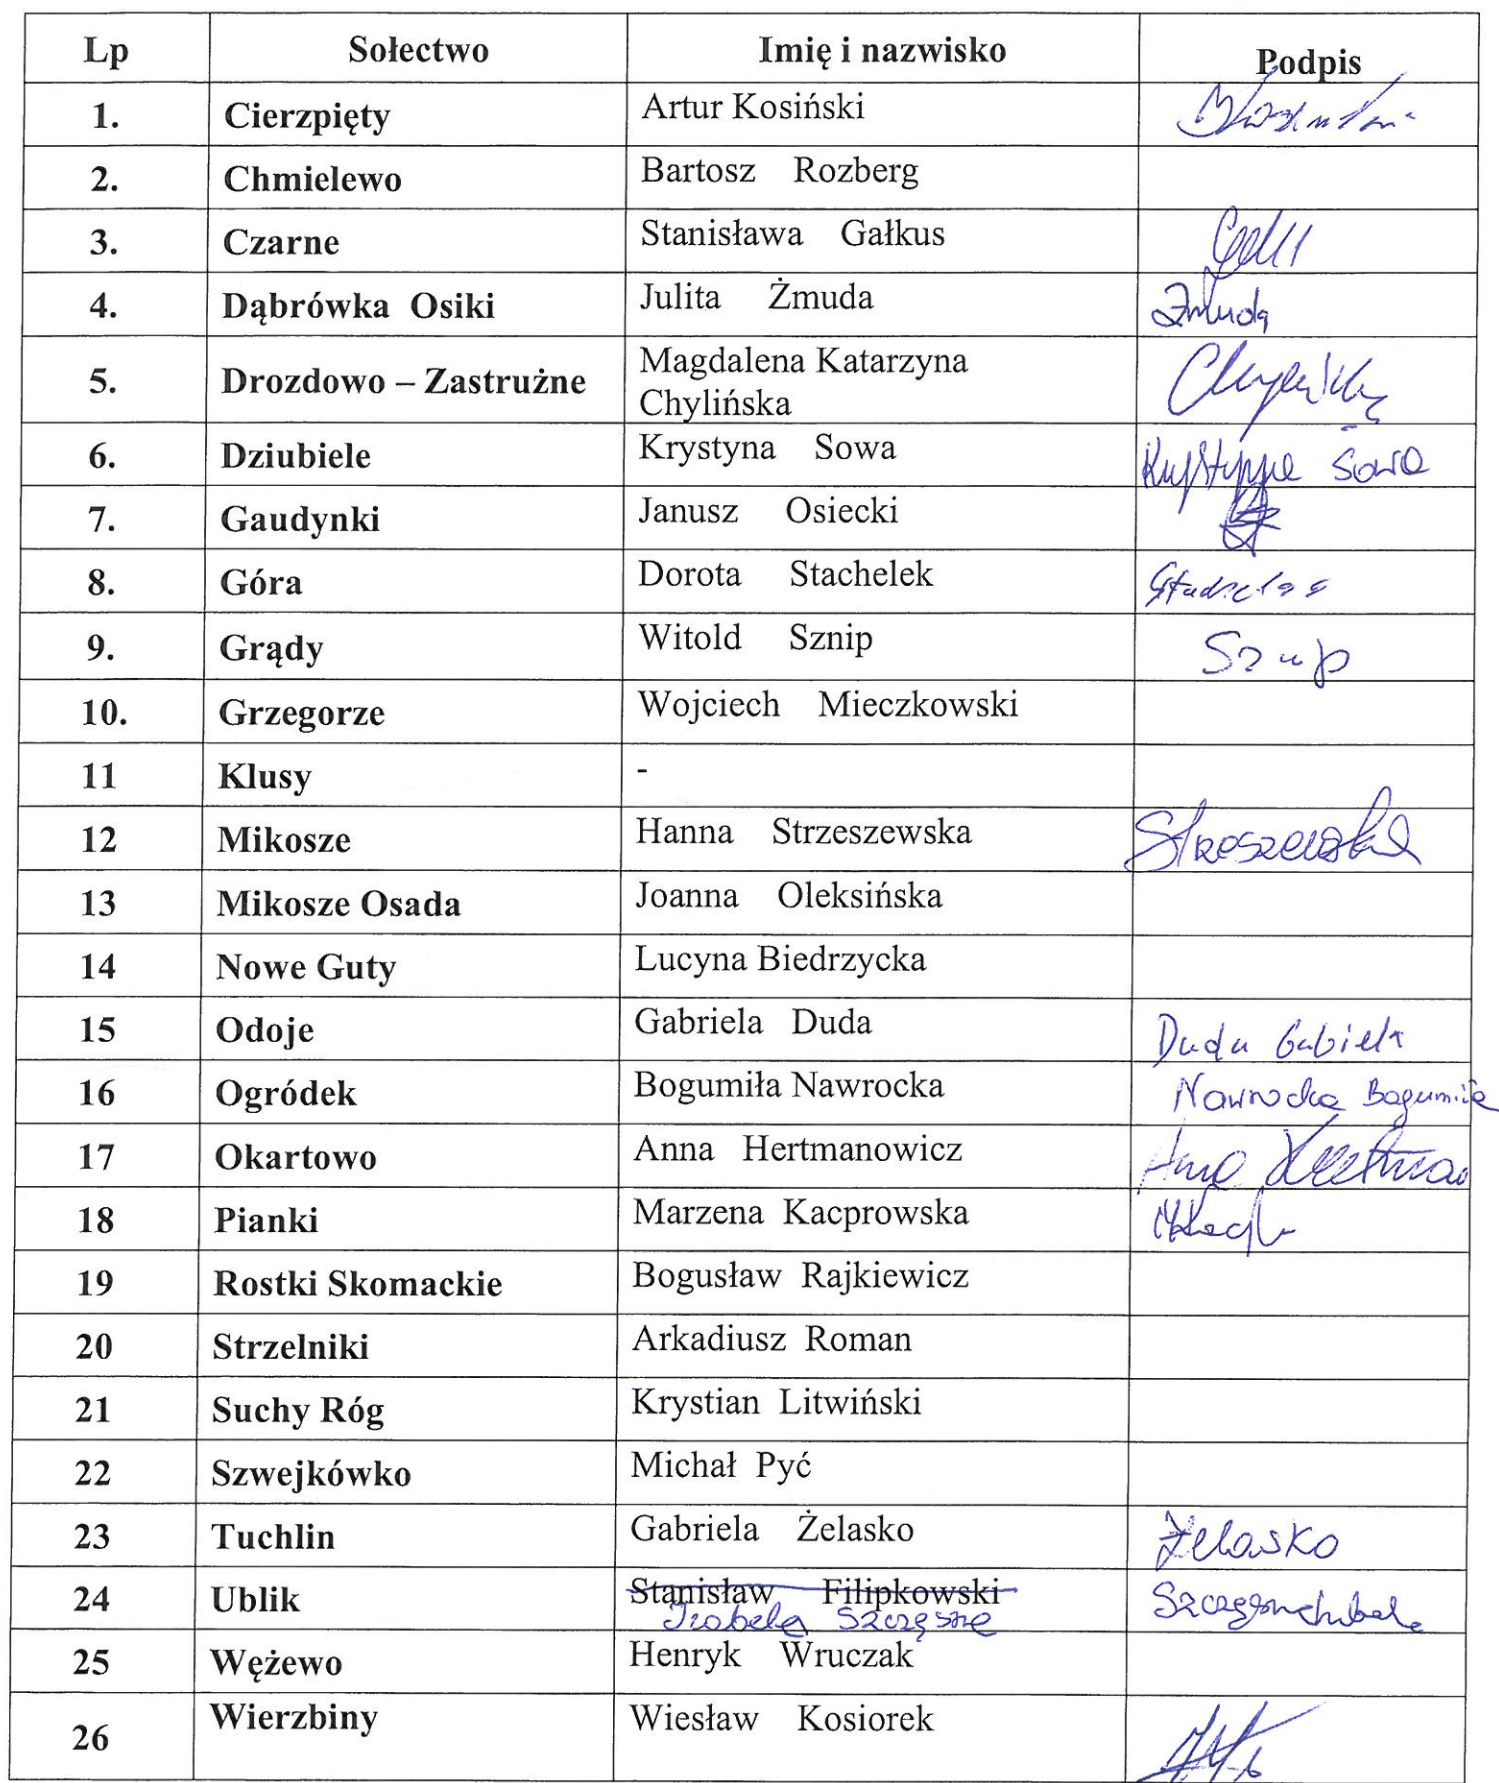 Lp Sołectwo Imię i nazwisko Podpis
1. Cierzpięty Artur Kosiński
2. Chmielewo Bartosz Rozberg
3. Czarne Stanisława Gałkus
4. Dąbrówka Osiki Julita Żmuda Żmuda
5. Drozdowo – Zastrużne Magdalena Katarzyna
Chylińska
6. Dziubiele Krystyna Sowa Krystyna Sowa
7. Gaudynki Janusz Osiecki
8. Góra Dorota Stachelek
9. Grądy Witold Sznip
10. Grzegorze Wojciech Mieczkowski
11 Klusy -
12 Mikosze Hanna Strzeszewska
13 Mikosze Osada Joanna Oleksińska
14 Nowe Guty Lucyna Biedrzycka
15 Odoje Gabriela Duda Duda
16 Ogródek Bogumiła Nawrocka Nawrocka Bogumiła
17 Okartowo Anna Hertmanowicz Anna
18 Pianki Marzena Kacprowska
19 Rostki Skomackie Bogusław Rajkiewicz
20 Strzelniki Arkadiusz Roman
21 Suchy Róg Krystian Litwiński
22 Szwejkówko Michał Pyć
23 Tuchlin Gabriela Żelasko Żelasko
24 Ublik Stanisław Filipkowski
Izabela Szczęsne
25 Wężewo Henryk Wruczak
26 Wierzbiny Wiesław Kosiorek